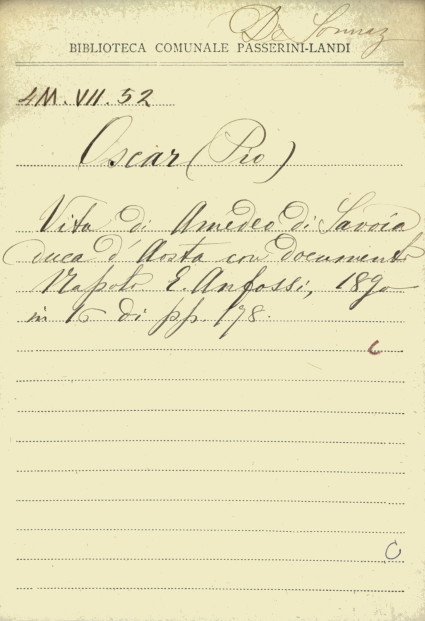 De Sonnaz
BIBLIOTECA COMUNALE PASSERINI-LANDI
4M.VII.52
Oscar (Pio)
Vita di Amedeo di Savoia
duca d'Aosta con documenti
Napoli E. Anfossi, 1890
in 16 di pp. 178.
C
C